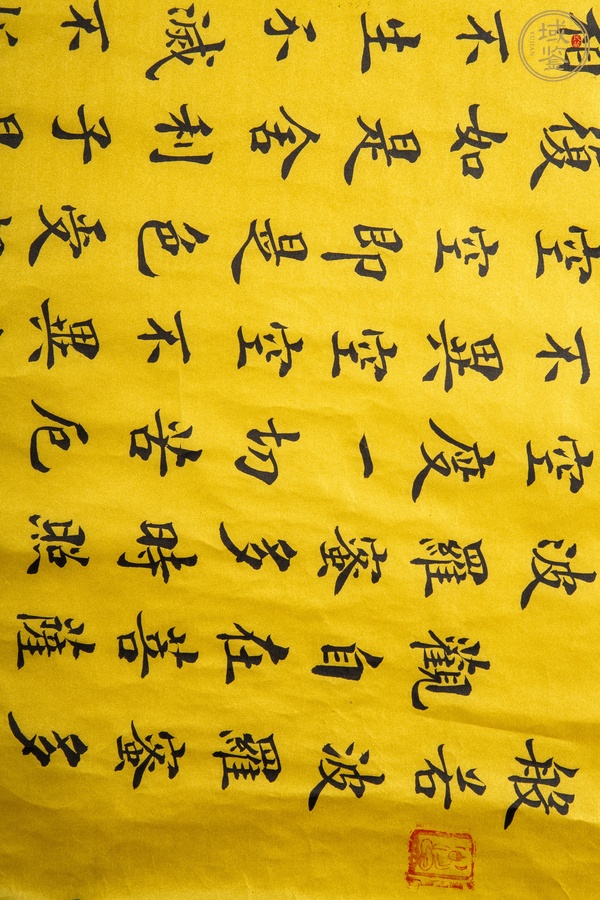 般若波羅蜜多
觀自在菩薩
波羅蜜多時照
空度一切苦厄
不異空空不異
空空即是色受
復如是舍利子
相不生不滅不
域鉴